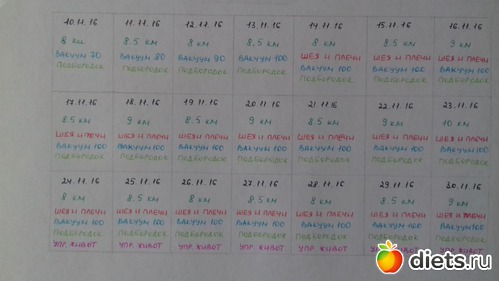 10.11.16
8 км
Вакуум 70
Подбородок
11.11.16
8.5 км
Вакуум 80
Подбородок
12.11.16
8 км
Вакуум 90
Подбородок
13.11.16
8.5 км
Вакуум 100
Подбородок
14.11.16
8 км
Шея и плечи
Вакуум 100
Подбородок
15.11.16
8.5 км
Шея и плечи
Вакуум 100
Подбородок
16.11.16
9 км
Шея и плечи
Вакуум 100
Подбородок
17.11.16
8.5 км
Шея и плечи
Вакуум 100
Подбородок
18.11.16
9 км
Шея и плечи
Вакуум 100
Подбородок
19.11.16
8.5 км
Шея и плечи
Вакуум 100
Подбородок
20.11.16
9 км
Шея и плечи
Вакуум 100
Подбородок
21.11.16
8.5 км
Шея и плечи
Вакуум 100
Подбородок
22.11.16
9 км
Шея и плечи
Вакуум 100
Подбородок
23.11.16
10 км
Шея и плечи
Вакуум 100
Подбородок
24.11.16
8 км
Шея и плечи
Вакуум 100
Подбородок
Упр. живот
25.11.16
8.5 км
Шея и плечи
Вакуум 100
Подбородок
Упр. живот
26.11.16
8 км
Шея и плечи
Вакуум 100
Подбородок
Упр. живот
27.11.16
8.5 км
Шея и плечи
Вакуум 100
Подбородок
Упр. живот
28.11.16
8 км
Шея и плечи
Вакуум 100
Подбородок
Упр. живот
29.11.16
8.5 км
Шея и плечи
Вакуум 100
Подбородок
Упр. живот
30.11.16
9 км
Шея и плечи
Вакуум 100
Подбородок
Упр. живот
diets.ru